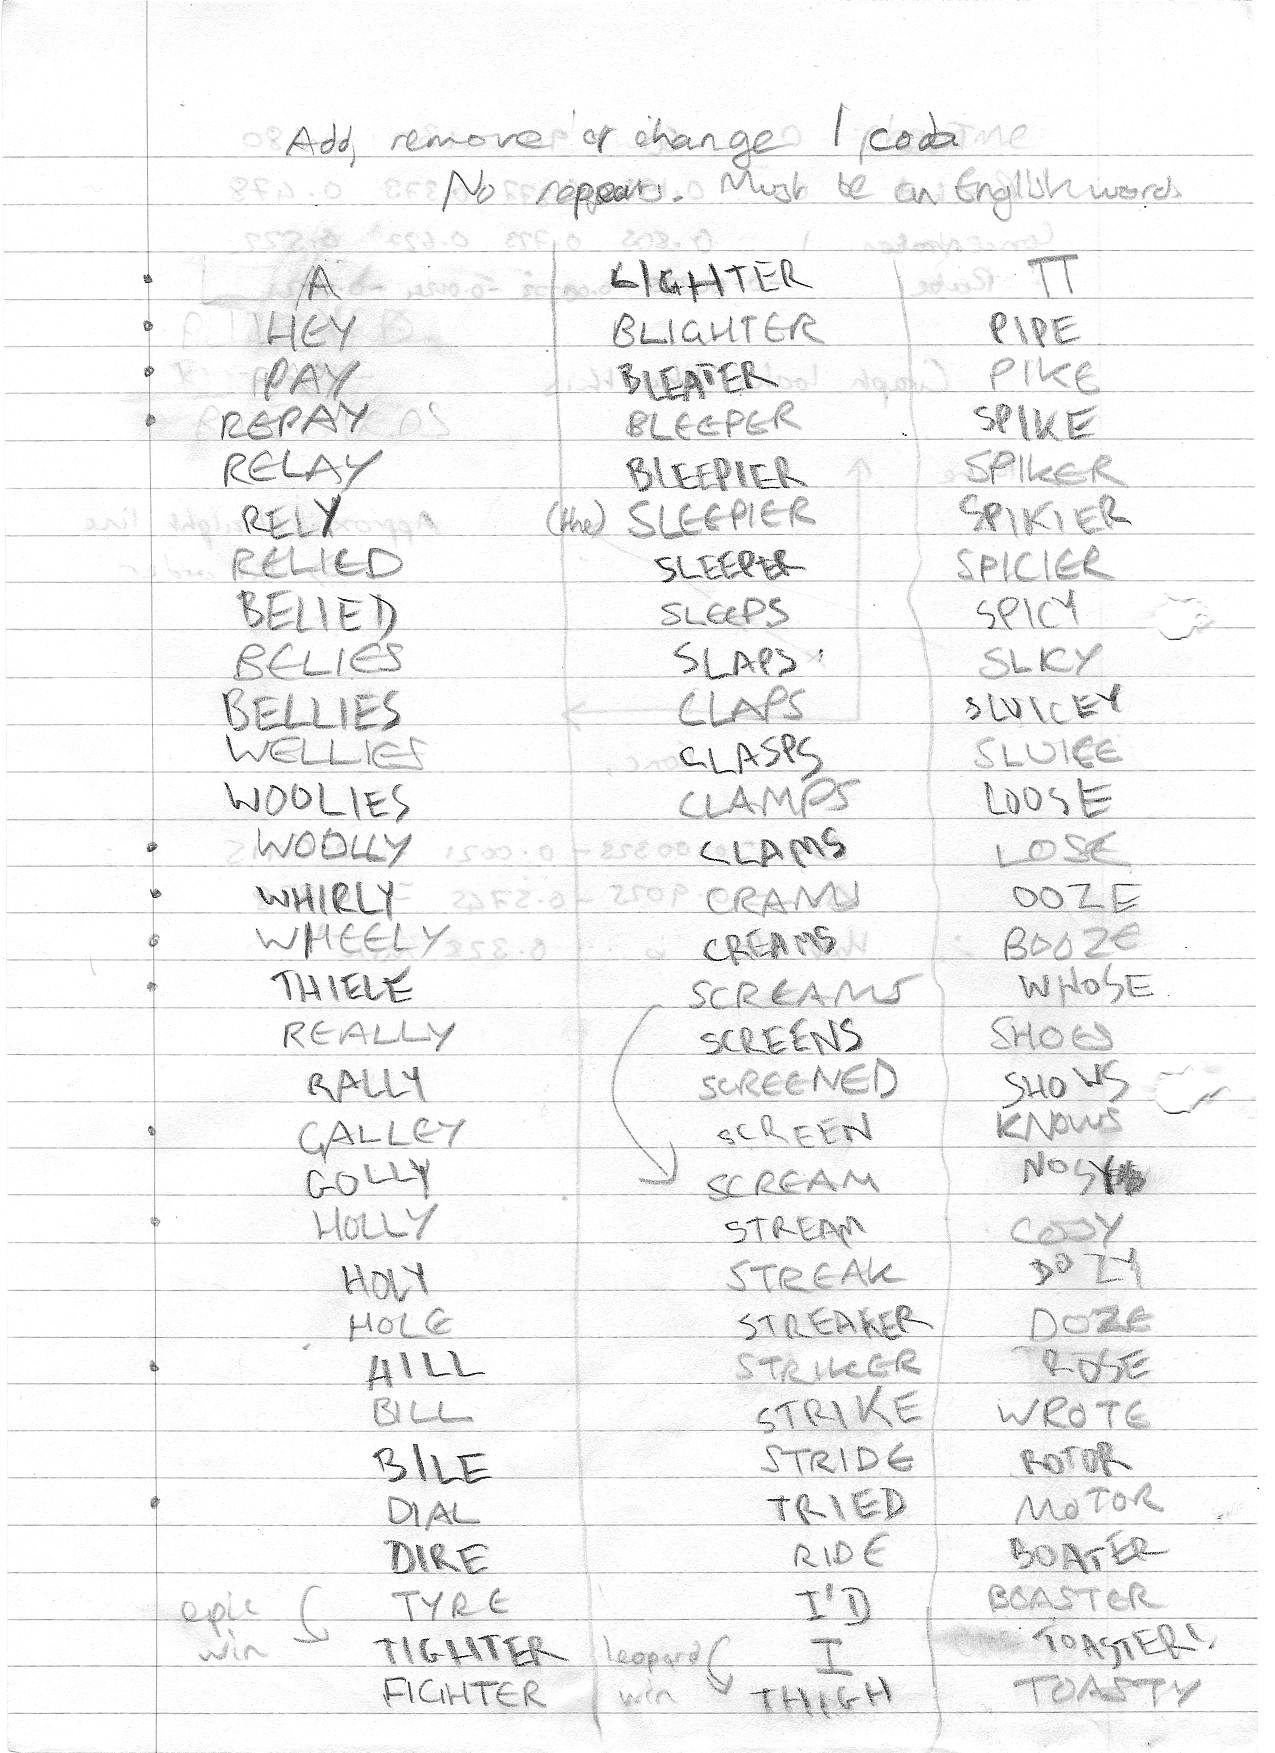 Add, remove or change 1 coda
No repeats. Must be an English words
A
HEY
PAY
REPAY
RELAY
RELY
RELIED
BELIED
BELIES
BELLIES
WELLIES
WOOLIES
WOOLLY
WHIRLY
WHEELY
THIELE
REALLY
RALLY
GALLEY
GOLLY
HOLLY
HOLY
HOLE
HILL
BILL
BILE
DIAL
DIRE
epic TYRE
win TIGHTER
FIGHTER
LIGHTER
BLIGHTER
BLEATER
BLEEPER
BLEEPIER
(the) SLEEPIER
SLEEPER
SLEEPS
SLAPS
CLAPS
CLASPS
CLAMPS
CLAMS
CRAMS
CREAMS
SCREAMS
SCREENS
SCREENED
SCREEN
SCREAM
STREAM
STREAK
STREAKER
STRIKER
STRIKE
STRIDE
TRIED
RIDE
I'D
leopard I
win THIGH
π
PIPE
PIKE
SPIKE
SPIKER
SPIKIER
SPICIER
SPICY
SLICY
SLUICEY
SLUICE
LOOSE
LOSE
OOZE
BOOZE
WHOSE
SHOES
SHOWS
KNOWS
NOSY
COSY
DOZY
DOZE
ROSE
WROTE
ROTOR
MOTOR
BOATER
BOASTER
TOASTER!
TOASTY